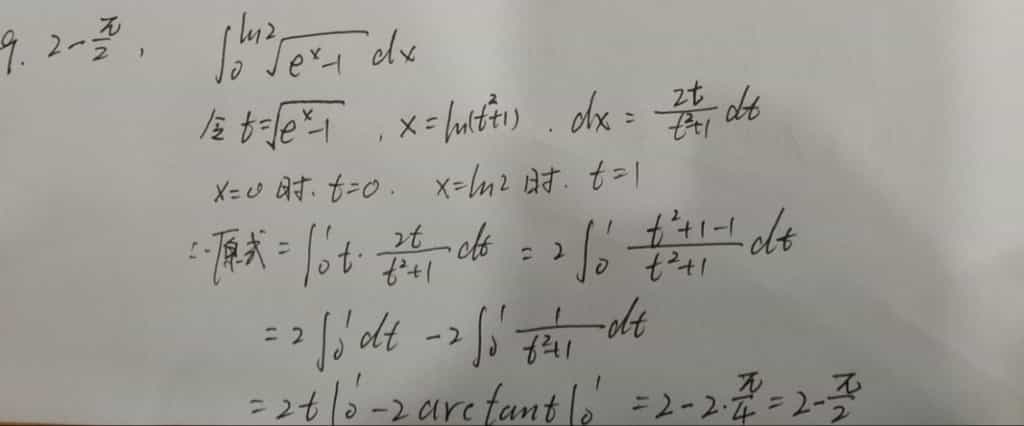 9. 2-π/2, ∫₀^{ln2} √(eˣ-1) dx
令 t=√(eˣ-1) , x=ln(t²+1) . dx = 2t/(t²+1) dt
x=0时. t=0. x=ln2时. t=1
∴原式 = ∫₀¹ t· 2t/(t²+1) dt = 2∫₀¹ (t²+1-1)/(t²+1) dt
= 2∫₀¹ dt - 2∫₀¹ 1/(t²+1) dt
= 2t|₀¹ - 2 arctant|₀¹ = 2-2·π/4 = 2-π/2